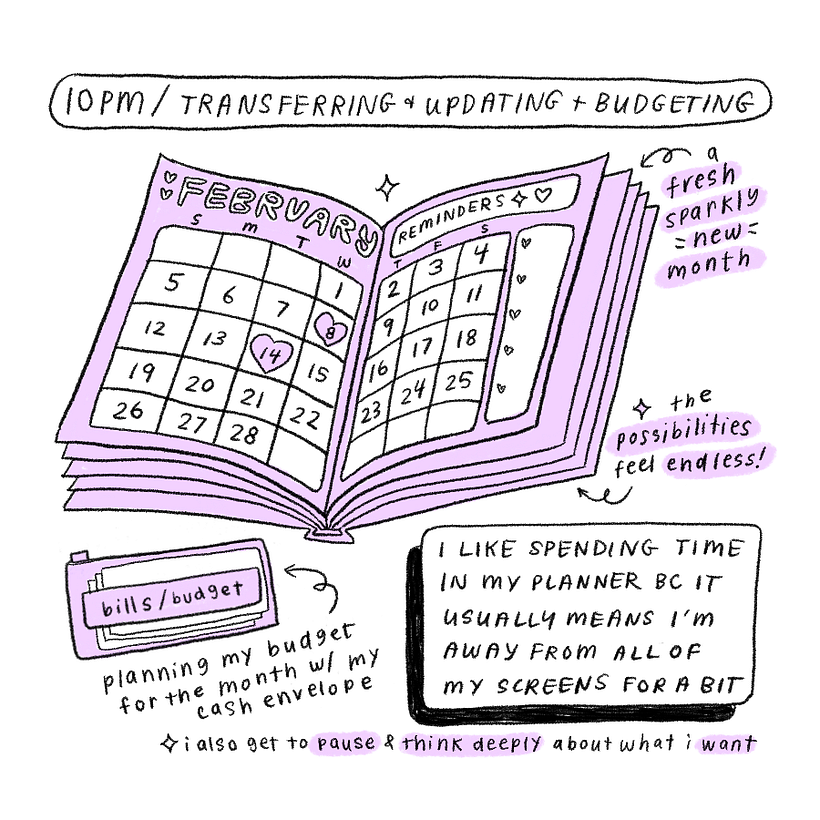 10PM / TRANSFERRING & UPDATING + BUDGETING
FEBRUARY
S M T W
1
5 6 7 8
12 13 14 15
19 20 21 22
26 27 28
REMINDERS
T F S
2 3 4
9 10 11
16 17 18
23 24 25
a
fresh
sparkly
=new=
month
the
possibilities
feel endless!
bills/budget
planning my budget
for the month w/ my
cash envelope
I LIKE SPENDING TIME
IN MY PLANNER BC IT
USUALLY MEANS I'M
AWAY FROM ALL OF
MY SCREENS FOR A BIT
i also get to pause & think deeply about what i want